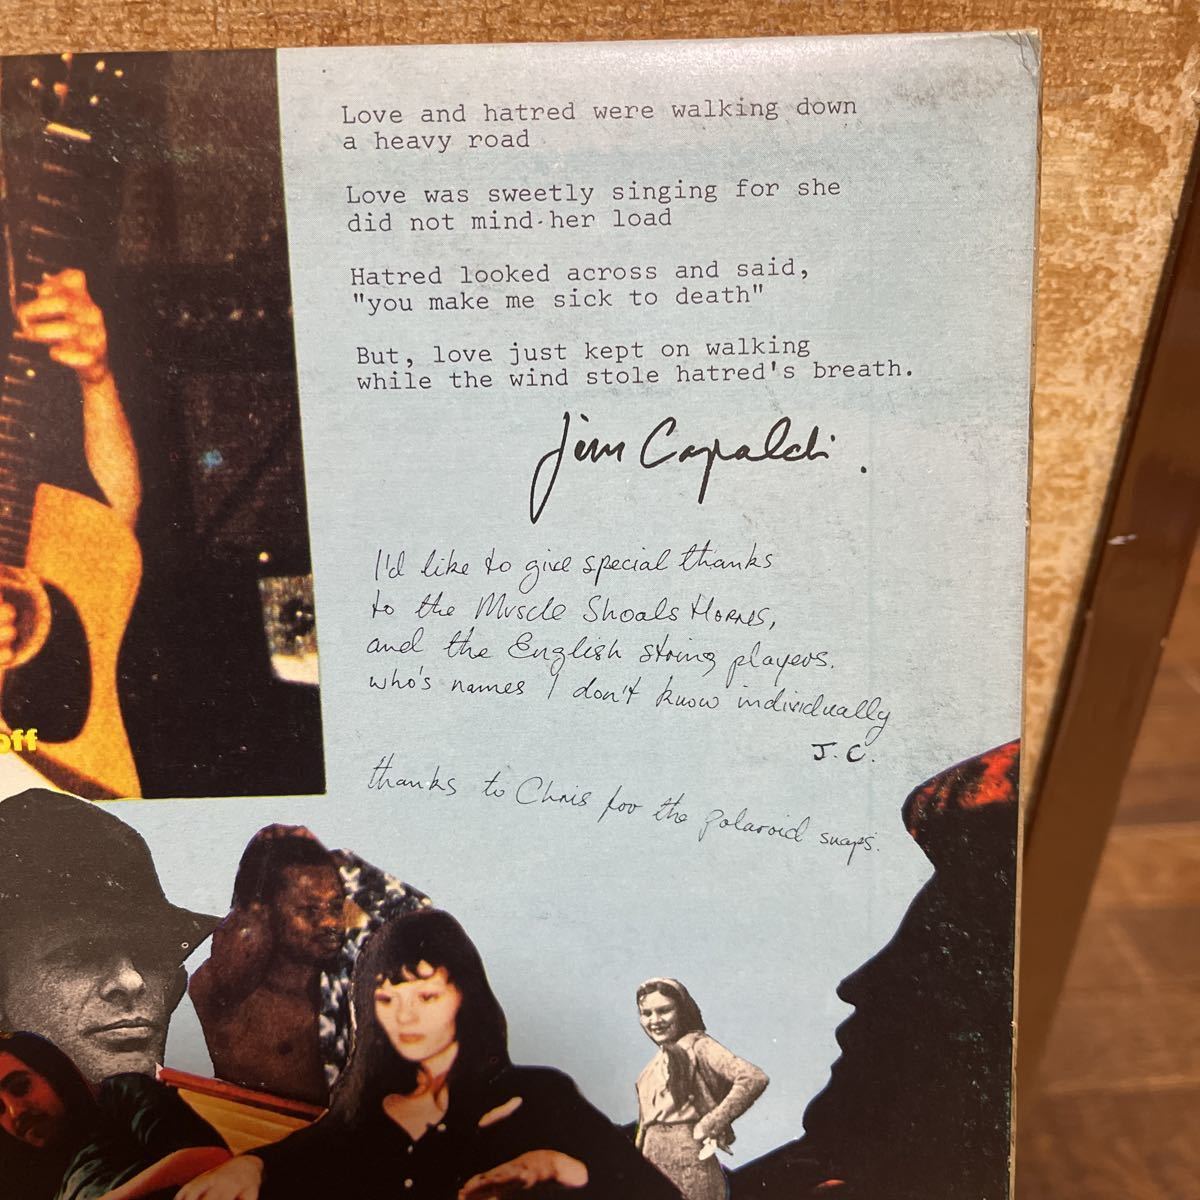 Love and hatred were walking down
a heavy road
Love was sweetly singing for she
did not mind her load
Hatred looked across and said,
"you make me sick to death"
But, love just kept on walking
while the wind stole hatred's breath.
Jim Capaldi.
I'd like to give special thanks
to the Muscle Shoals Hornes,
and the English string players.
who's names I don't know individually
J.C.
thanks to Chris for the polaroid snaps.
off